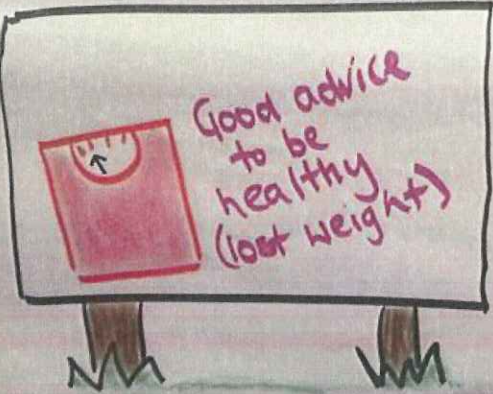 Good advice
to be
healthy
(lost weight)